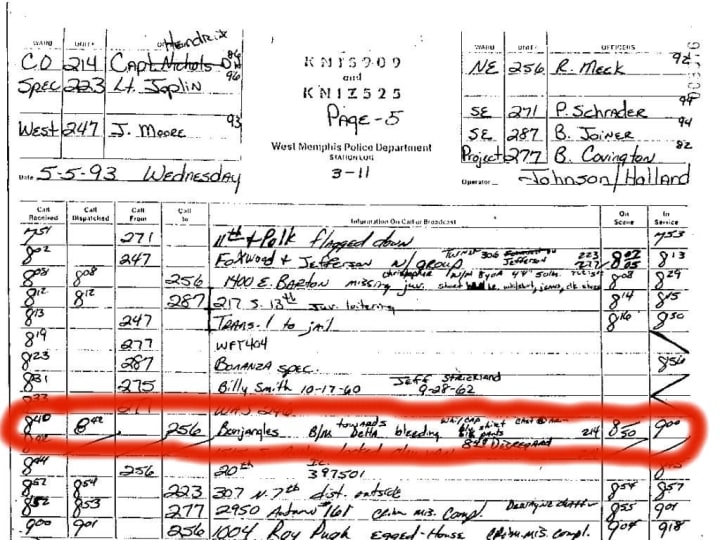 WARD UNIT OFFICERS
Hendrix
C.O 214 Capt Nichols 86
KNIS909
NE 256 R. Meck 92
Spec 223 Lt. Joplin 96
and
KNIZ525
Page-5
SE 271 P. Schrader 94
West 247 J. Moore 93
SE 287 B. Joiner 94
West Memphis Police Department
STATION LOG
Project 277 B. Covington 82
Date 5-5-93 Wednesday
3-11
Operator Johnson/Holland
Call Received Call Dispatched Call From Call To Information On Call or Broadcast On Scene In Service
751 271 11th & Polk flagged down 753
802 247 Foxwood & Jefferson 223 813
808 808 256 1400 E. Barton missing juv. christopher 808 829
812 812 287 217 S. 13th Juv. loitering 814 815
813 247 Trans. 1 to jail 816 850
819 277 WFT404
823 287 Bonanza Spec. 856
831 275 Billy Smith 10-17-60 Jeff Strickland 9-28-62
840 842 256 Bonjangles B/M towards Delta bleeding 214 850 900
849 Disregard
844 256 20th 397501
852 854 223 307 N. 7th dist. outside 854 857
852 853 277 2950 Crim mis. Compl. 855 901
900 901 256 1004 Roy Pugh Egged-House Crim. mis. compl. 904 918